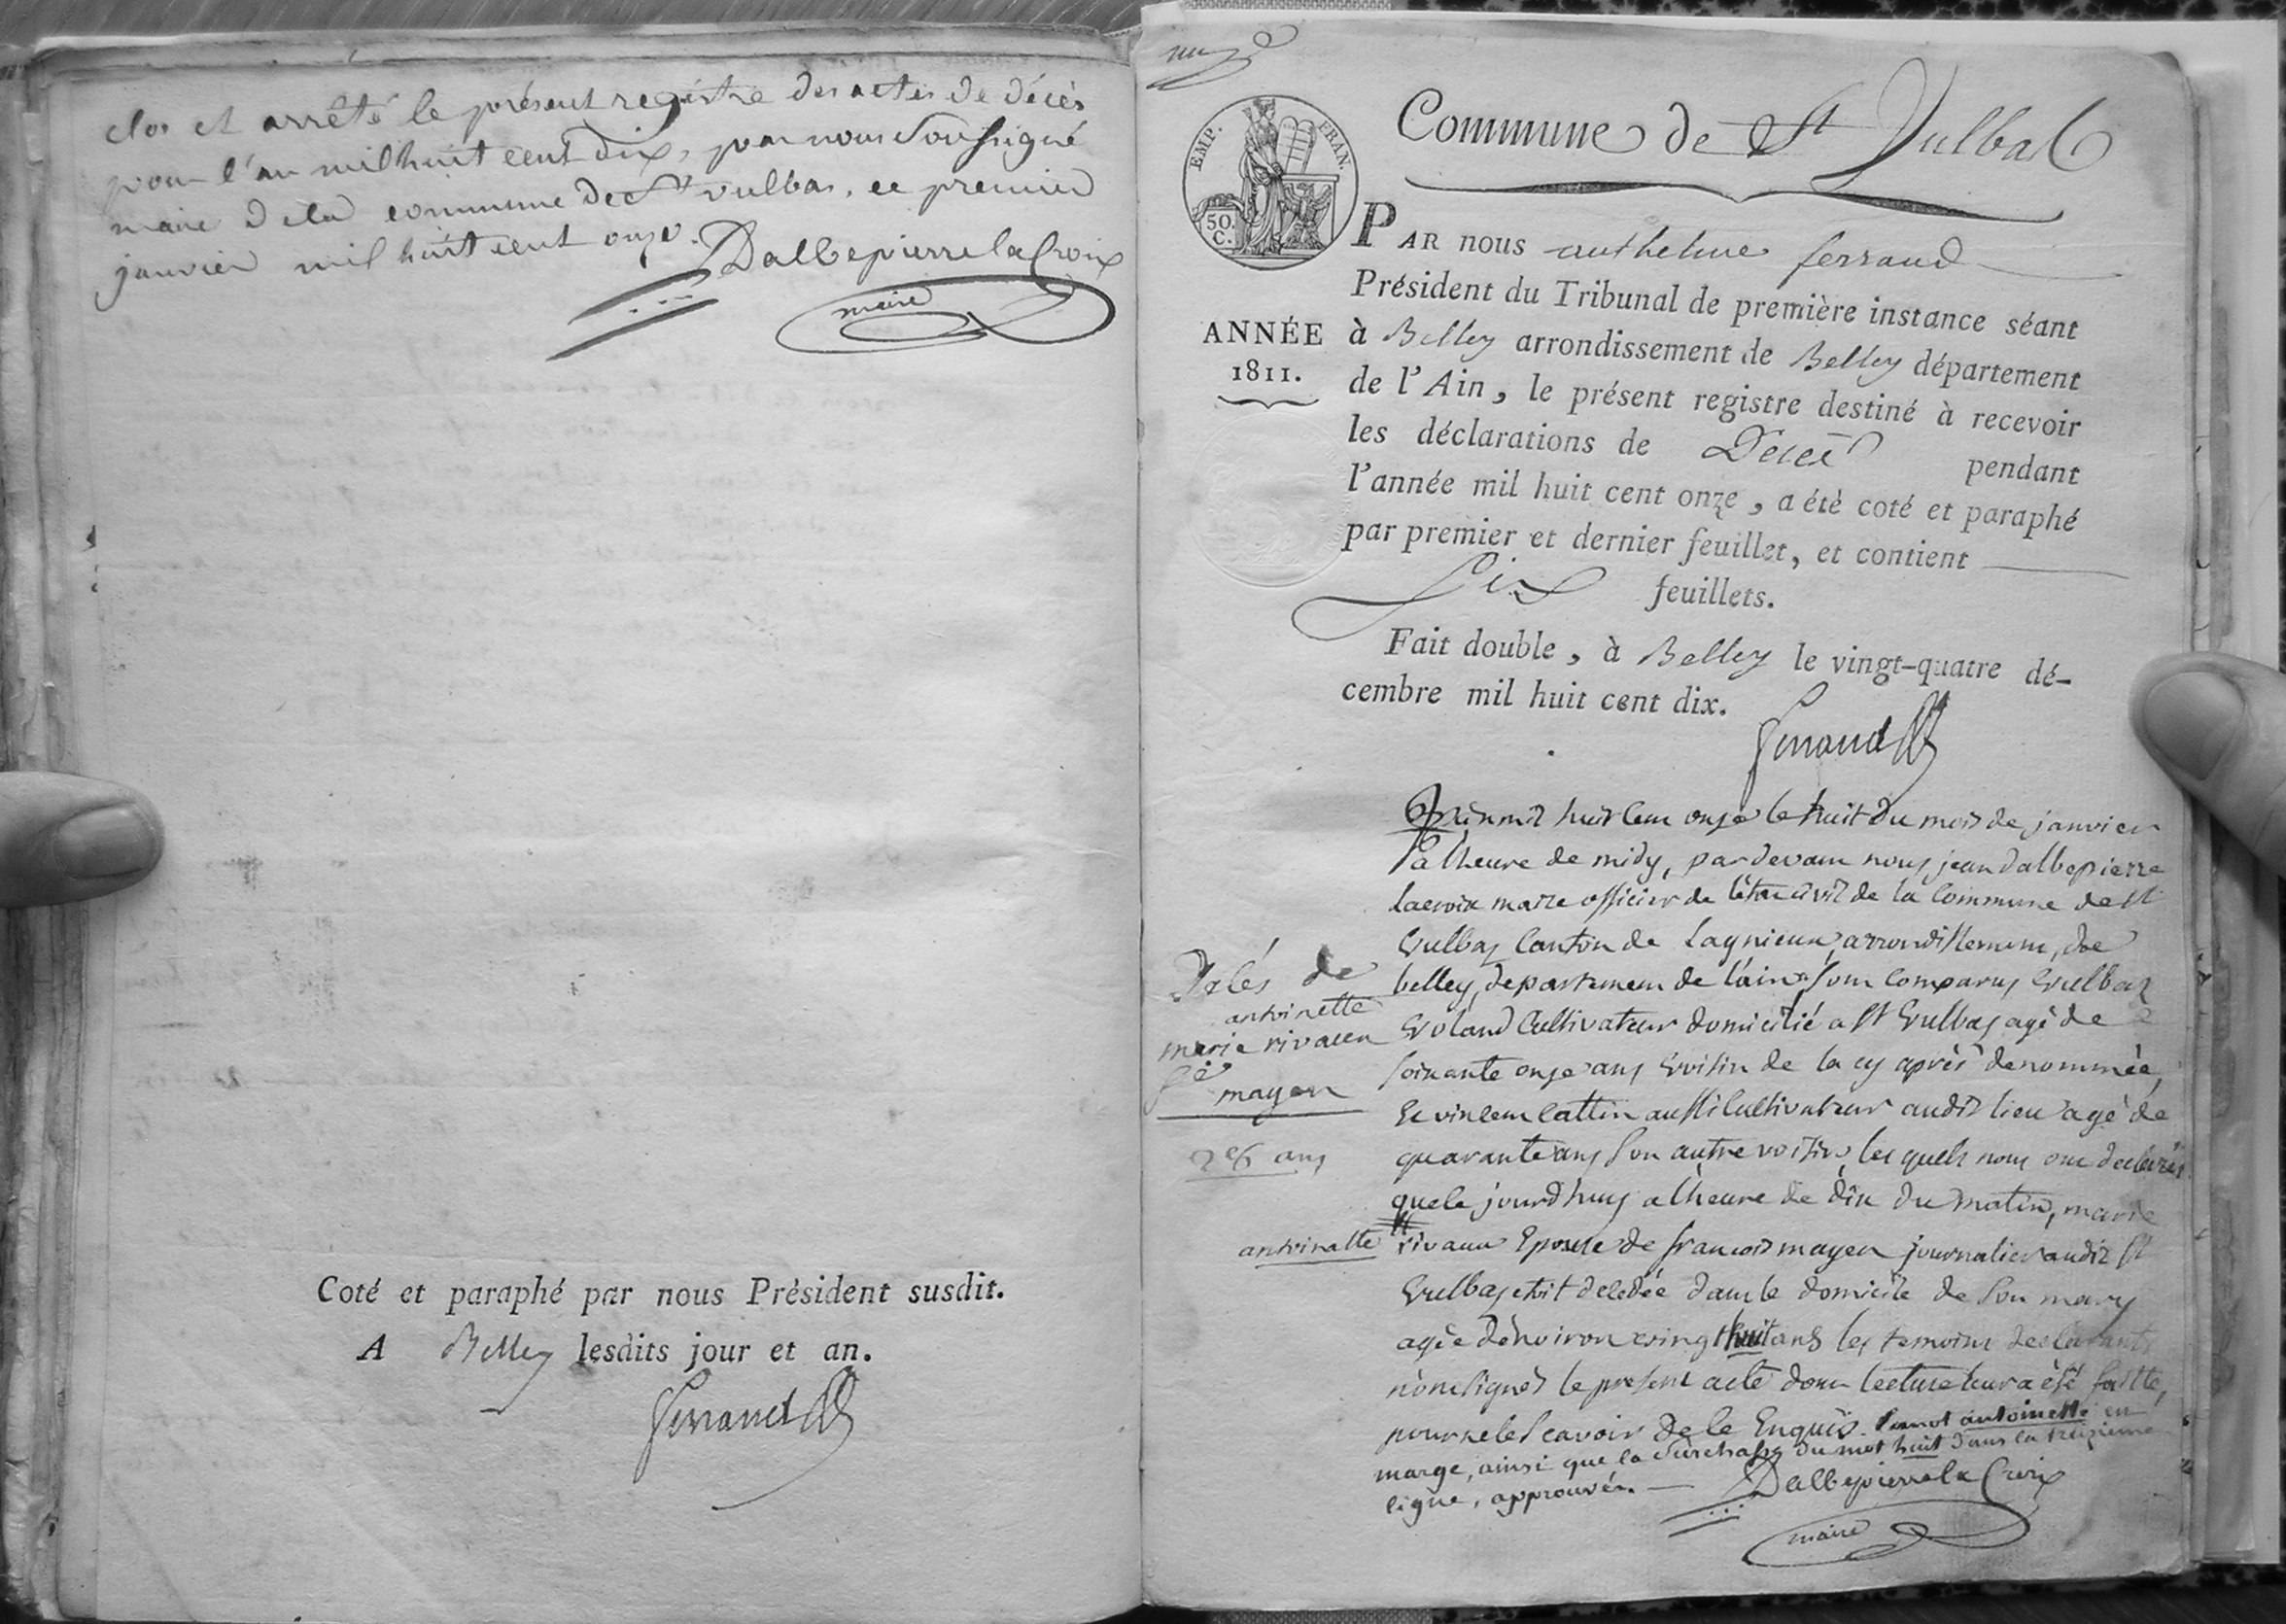 clos et arrêté le présent registre des actes de décès
pour l'an mil huit cent dix, par nous soussigné
maire de la commune de St vulbas, ce premier
janvier mil huit cent onze. Dalbepierre la Croix
maire
Coté et paraphé par nous Président susdit.
A Belley lesdits jour et an.
ferrand
Commune de St Vulbas
EMP. FRAN.
50 C.
PAR nous anthelme ferrand
Président du Tribunal de première instance séant
ANNÉE 1811.
à Belley arrondissement de Belley département
de l'Ain, le présent registre destiné à recevoir
les déclarations de Décès pendant
l'année mil huit cent onze, a été coté et paraphé
par premier et dernier feuillet, et contient
six feuillets.
Fait double, à Belley le vingt-quatre dé-
cembre mil huit cent dix.
ferrand
L'an mil huit cent onze le huit du mois de janvier
a l'heure de midy, par devant nous jean dalbepierre
lacroix maire officier de l'état civil de la Commune de St
Vulbas Canton de Lagnieux, arrondissement de
belley, departement de l'ain sont comparus Vulbas
Voland Cultivateur domicilié a St Vulbas agé de
soixante onze ans voisin de la cy après denommée,
Et vincent Cattin aussi Cultivateur audit lieu agé de
quarante ans son autre voisin, les quels nous ont declarés
que le jourd'huy a l'heure de dix du matin, marie
rivaux Epouse de francois mayen journalier audit St
Vulbas etoit decedée dans le domicile de son mary
agée d'environ vingt huit ans les temoins declarants
n'ont signés le present acte dont lecture leur a été faitte,
pour ne le scavoir de ce Enquis. Le mot antoinette en
marge, ainsi que la surcharge du mot huit dans la treizieme
ligne, approuvés. Dalbepierre la Croix
maire
Décés de
antoinette
marie rivaux
fe mayen
28 ans
antoinette